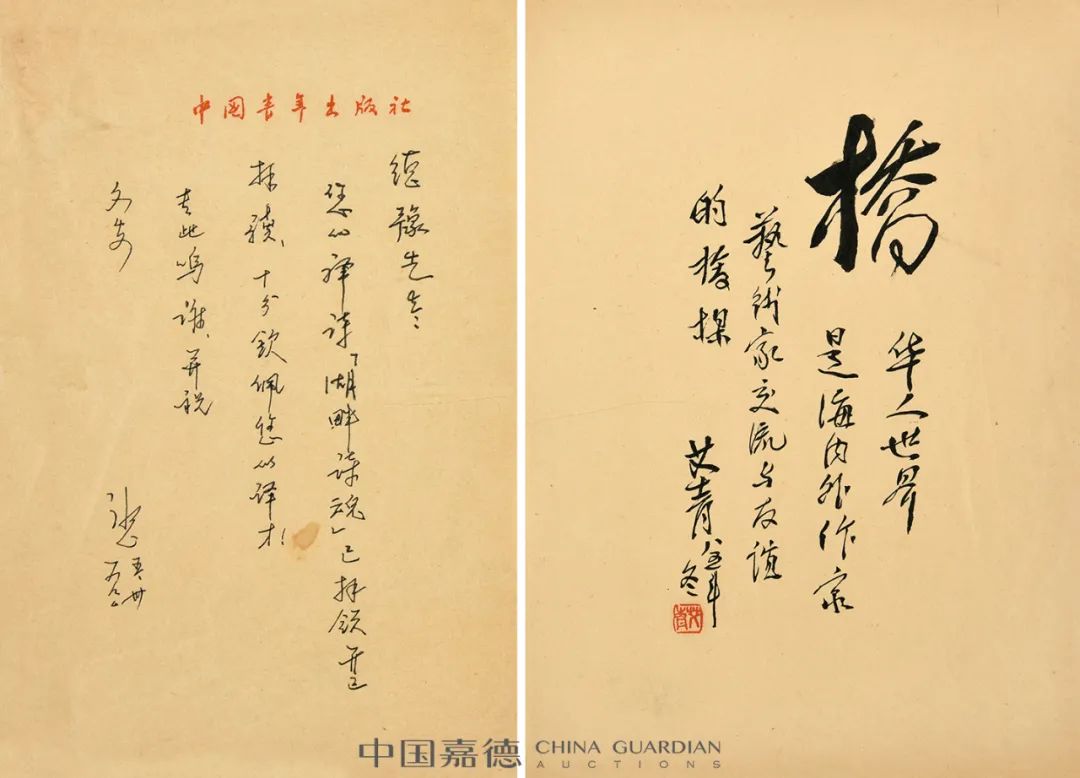 中国青年出版社
德豫先生
您的译诗「湖畔诗魂」已拜领并已
拜读、十分钦佩您的译才！
专此鸣谢、并祝
文安
橋
华人世界
是海内外作家
藝術家交流与友谊
的橋樑
艾青
冬
艾青
中国嘉德 CHINA GUARDIAN
AUCTIONS